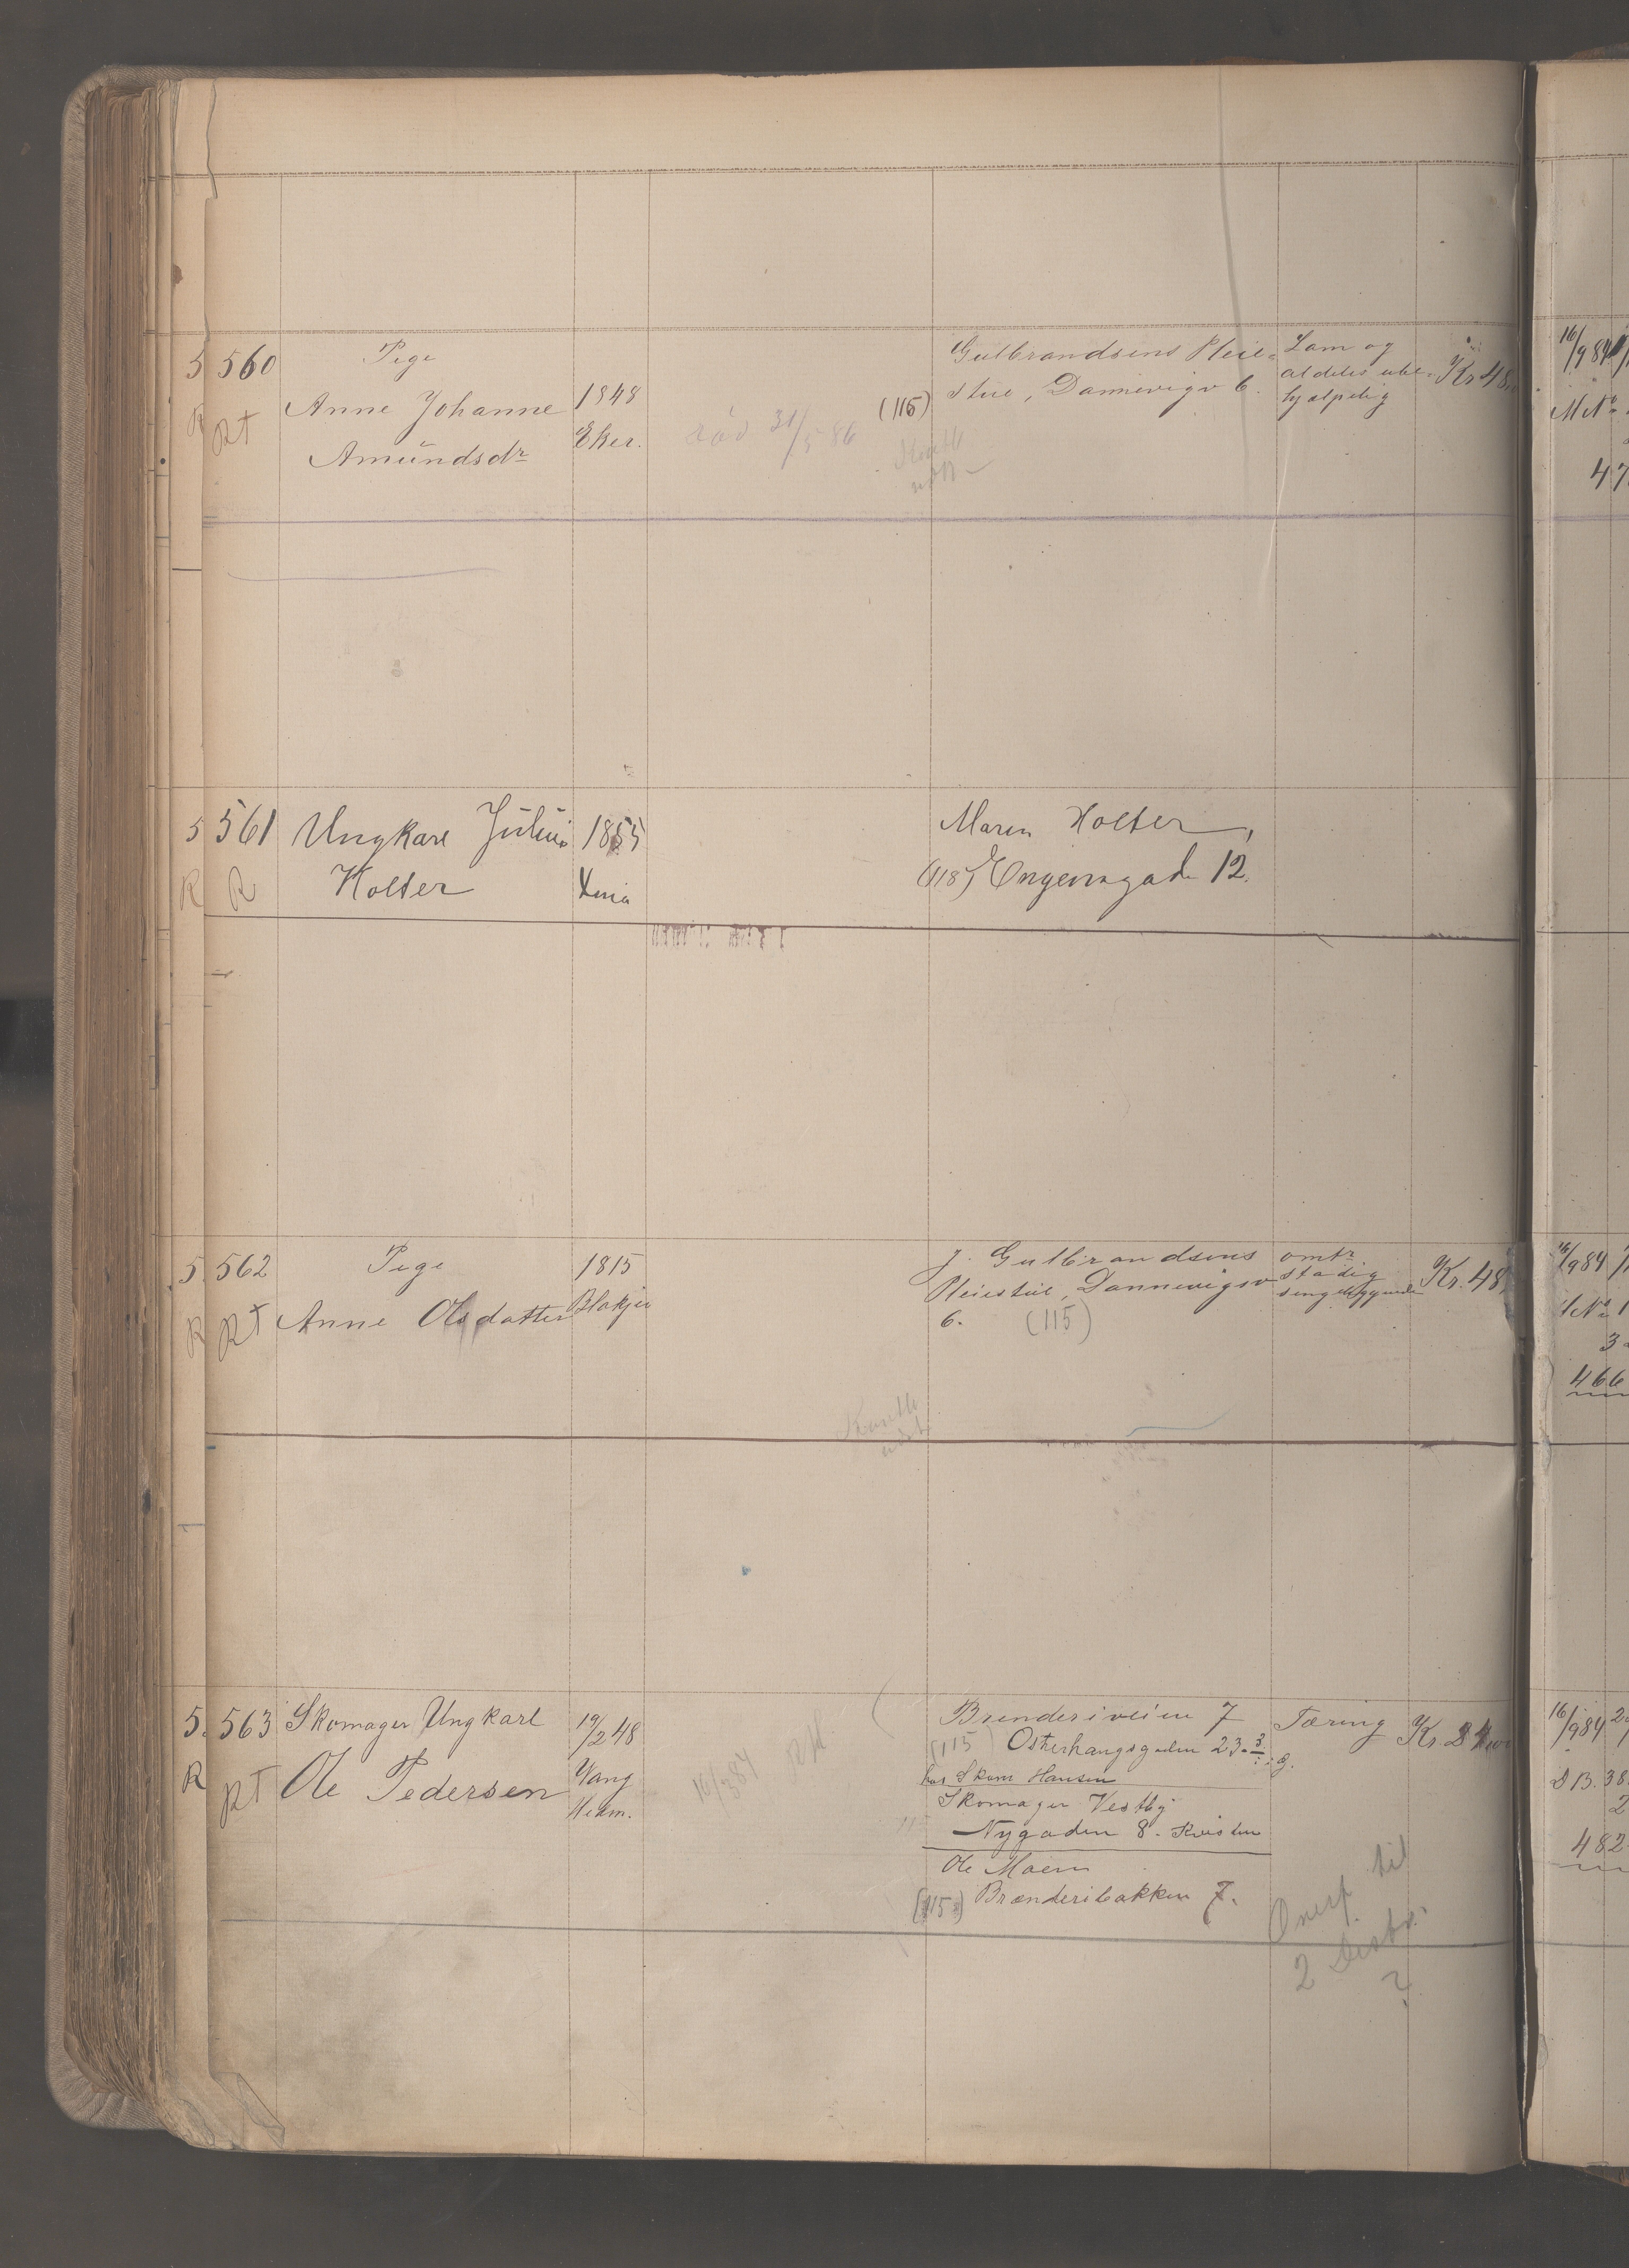 5 560 Pige
R Rt Anne Johanne
Amündsdr
1848
Eker.
31/5 86
(115)
Gulbrandsens Pleie-
stue, Dannevigsv 6.
Lam og
aldeles ube-
hjælpelig
Kr 48
16/9 84
M No
47
5 561 Ungkarl Julius
R R Holter
1855
Xenia
Maren Holter,
(118) Engensgade 12.
5. 562 Pige
R Rt Anne Olsdatter
1815
Blakjer
J. Gulbrandsens
Pleiestue, Dannevigsv
6. (115)
omtr
stadig
sengeliggende
Kr. 48
16/9 84
No 1
3
466
5. 563 Skomager Ungkarl
R Rt Ole Pedersen
19/2 48
Vang
Hedm.
16/3 84
Brenderiveien 7
(115) Osterhausgaden 23
hos Skom Hansen
Skomager Vestby
Nygaden 8. Kvisten
Ole Moen
(115) Brænderibakken 7.
Tæring
Kr.
Overf. til
2 Distr.
?
16/9 84
S B. 38
2
482